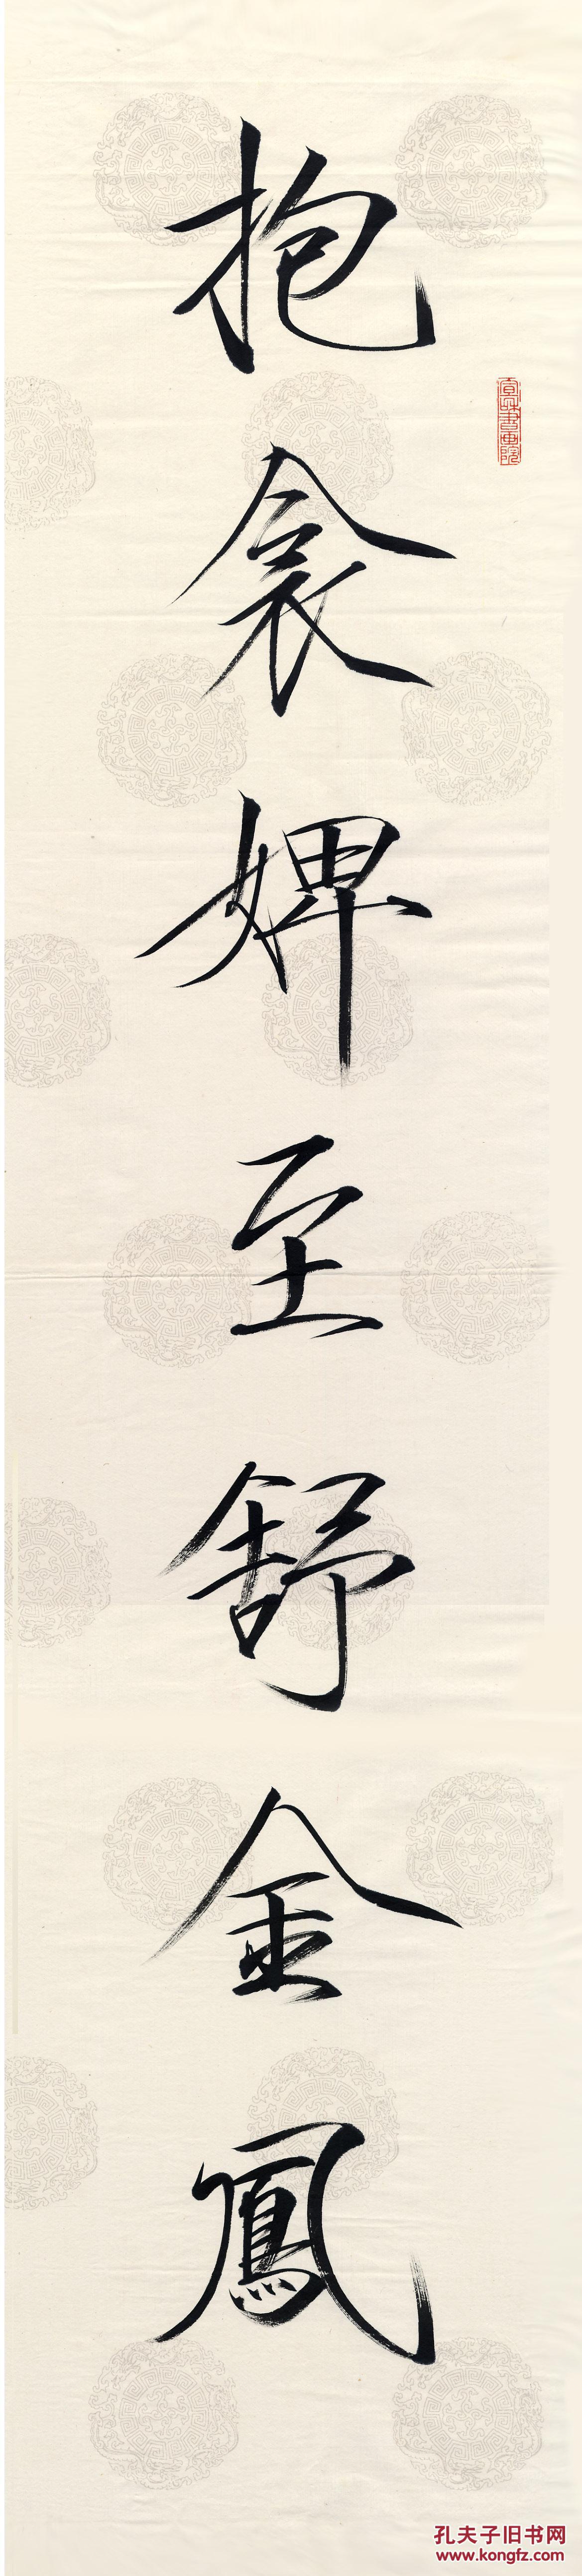 抱衾婢至舒金鳳
宣和書画院
孔夫子旧书网
www.kongfz.com